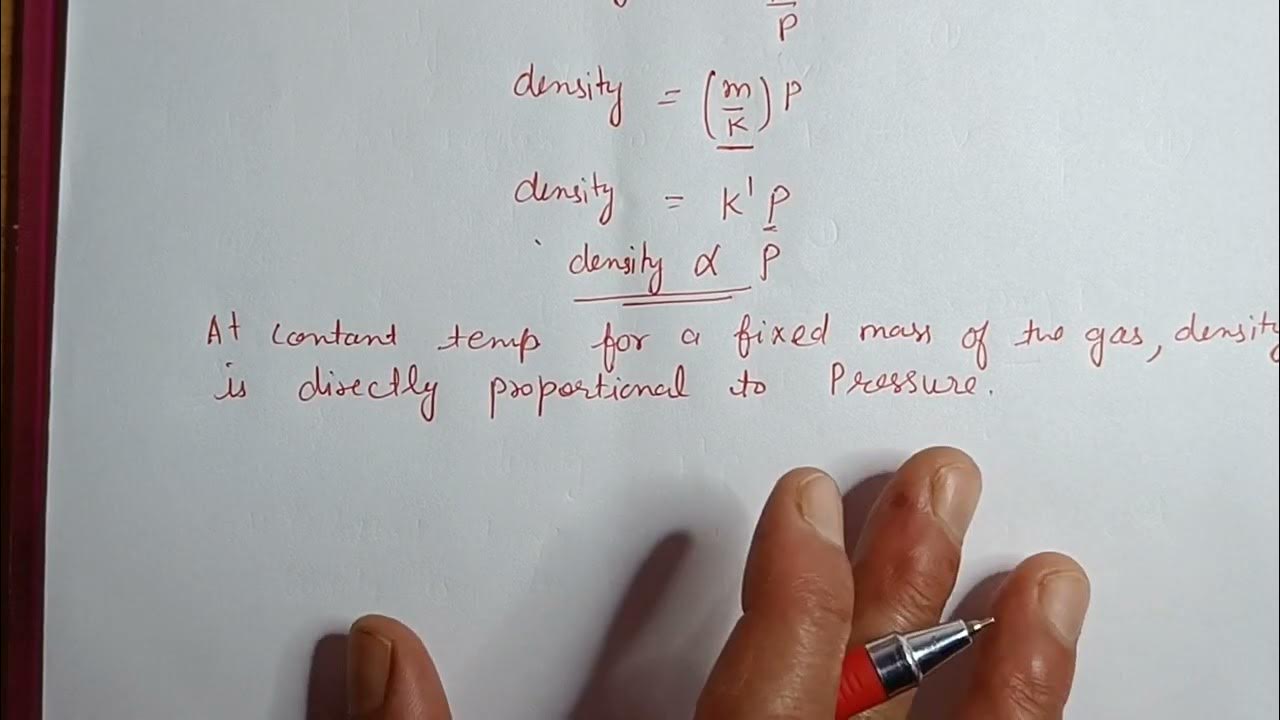 P
density = (m/K) P
density = K' P
density ∝ P
At contant temp for a fixed mass of the gas, density
is directly proportional to Pressure.